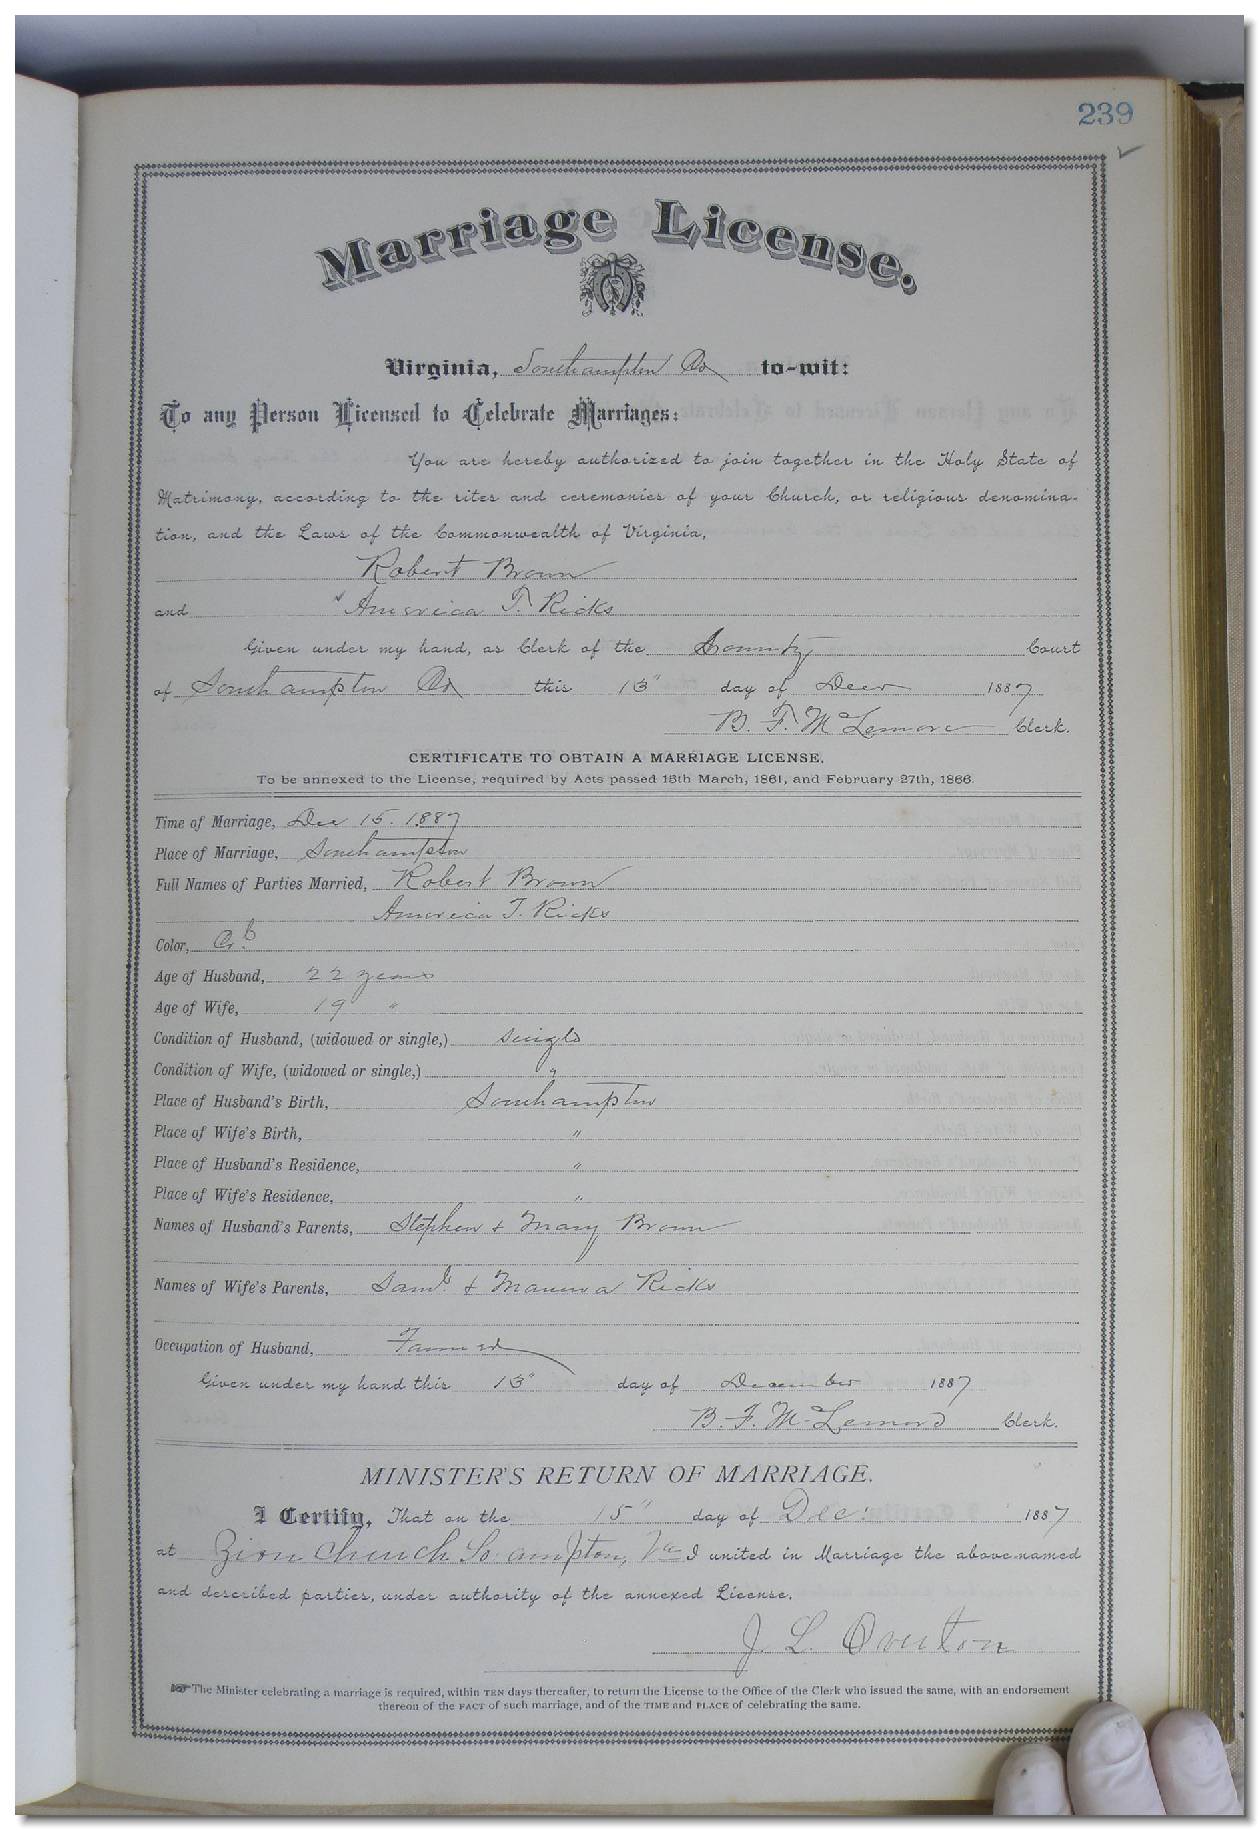 239
Marriage License.
Virginia, Southampton Co to-wit:
To any Person Licensed to Celebrate Marriages:
You are hereby authorized to join together in the Holy State of
Matrimony, according to the rites and ceremonies of your Church, or religious denomina-
tion, and the Laws of the Commonwealth of Virginia,
Robert Brown
and America T. Ricks
Given under my hand, as Clerk of the County Court
of Southampton Co this 13" day of Decr 1887
B. F. McLemore Clerk.
CERTIFICATE TO OBTAIN A MARRIAGE LICENSE.
To be annexed to the License, required by Acts passed 16th March, 1861, and February 27th, 1866.
Time of Marriage, Dec 15. 1887
Place of Marriage, Southampton
Full Names of Parties Married, Robert Brown
America T. Ricks
Color,
Age of Husband, 22 years
Age of Wife, 19 "
Condition of Husband, (widowed or single,) Single
Condition of Wife, (widowed or single,) "
Place of Husband's Birth, Southampton
Place of Wife's Birth, "
Place of Husband's Residence, "
Place of Wife's Residence, "
Names of Husband's Parents, Stephen & Mary Brown
Names of Wife's Parents, Saml. & Ricks
Occupation of Husband, Farmer
Given under my hand this 13" day of December 1887
B. F. McLemore Clerk.
MINISTER'S RETURN OF MARRIAGE.
I Certify, That on the 15" day of Dec. 1887
at Zion Church So.ampton, Va I united in Marriage the above-named
and described parties, under authority of the annexed License.
J. L. Overton
The Minister celebrating a marriage is required, within TEN days thereafter, to return the License to the Office of the Clerk who issued the same, with an endorsement
thereon of the FACT of such marriage, and of the TIME and PLACE of celebrating the same.